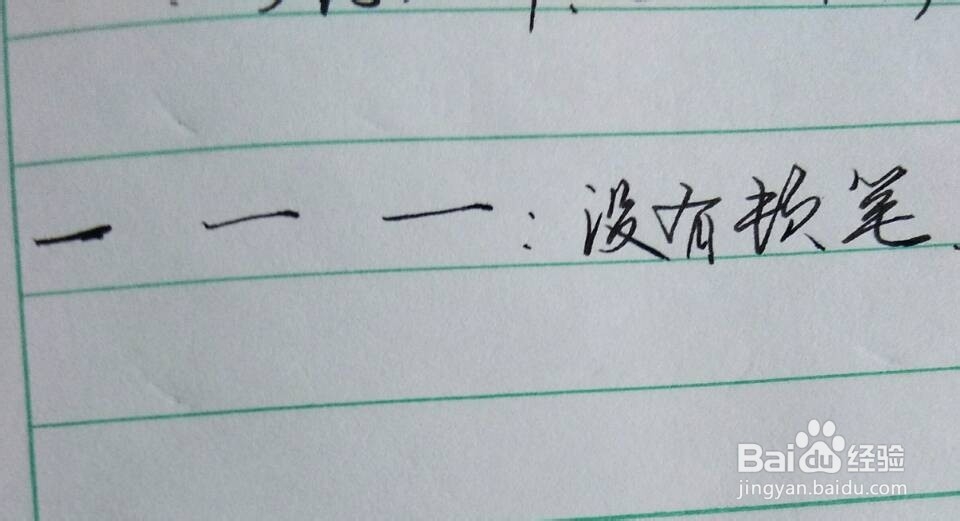 一 一 一：没有软笔
Bai du 经验
jingyan.baidu.com